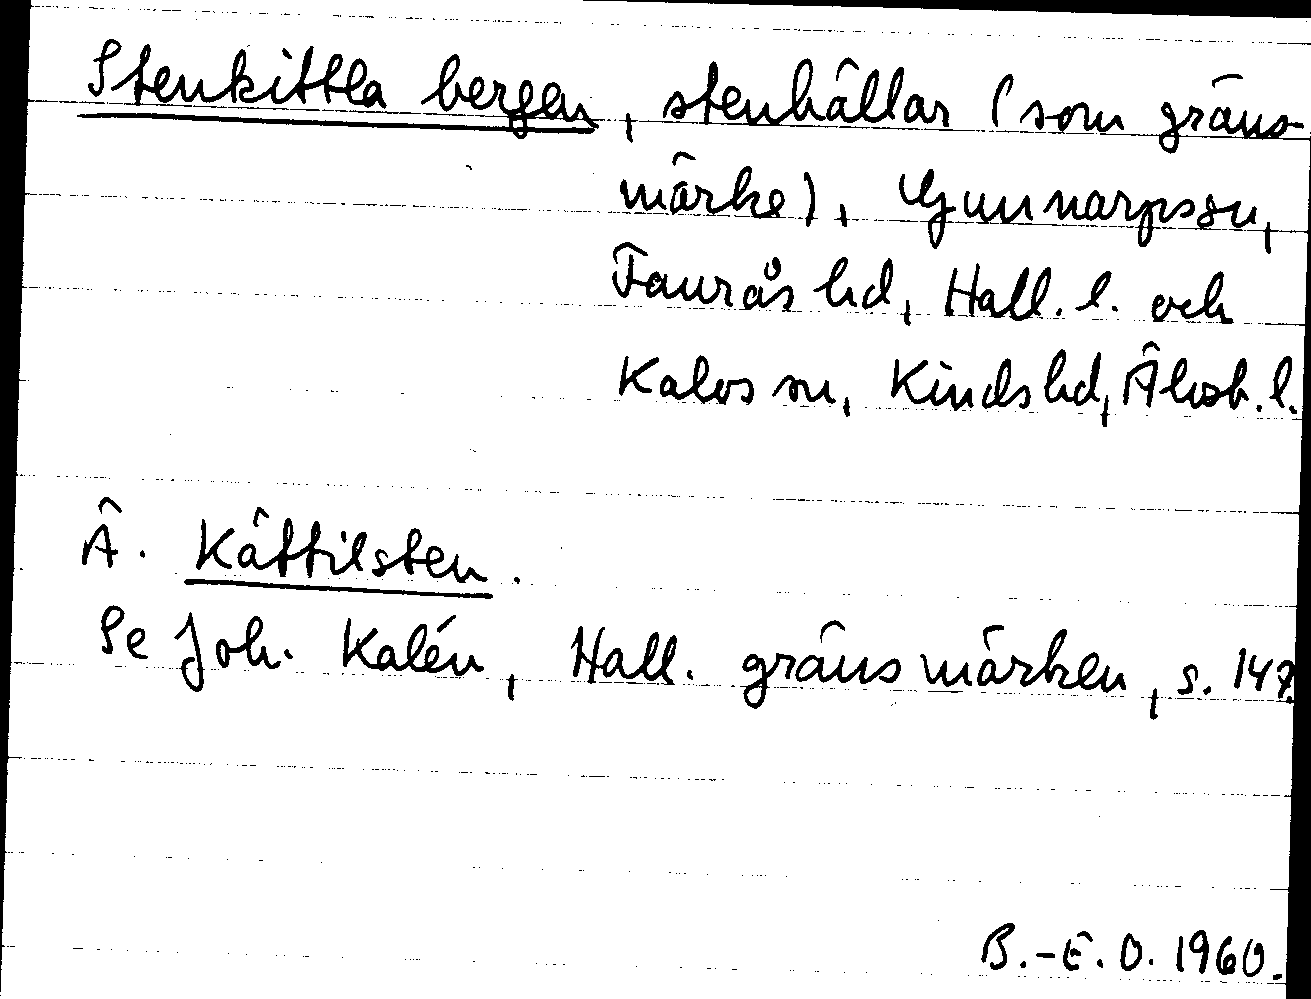 Stenkittla bergen, stenhällar (som gräns-
märke), Gunnarps sn,
Faurås hd, Hall. l. och
Kalvs sn, Kinds hd, Älvsb. l.
Ä. Kättilsten.
Se Joh. Kalén, Hall. gränsmärken, s. 147.
B.-E. O. 1960.